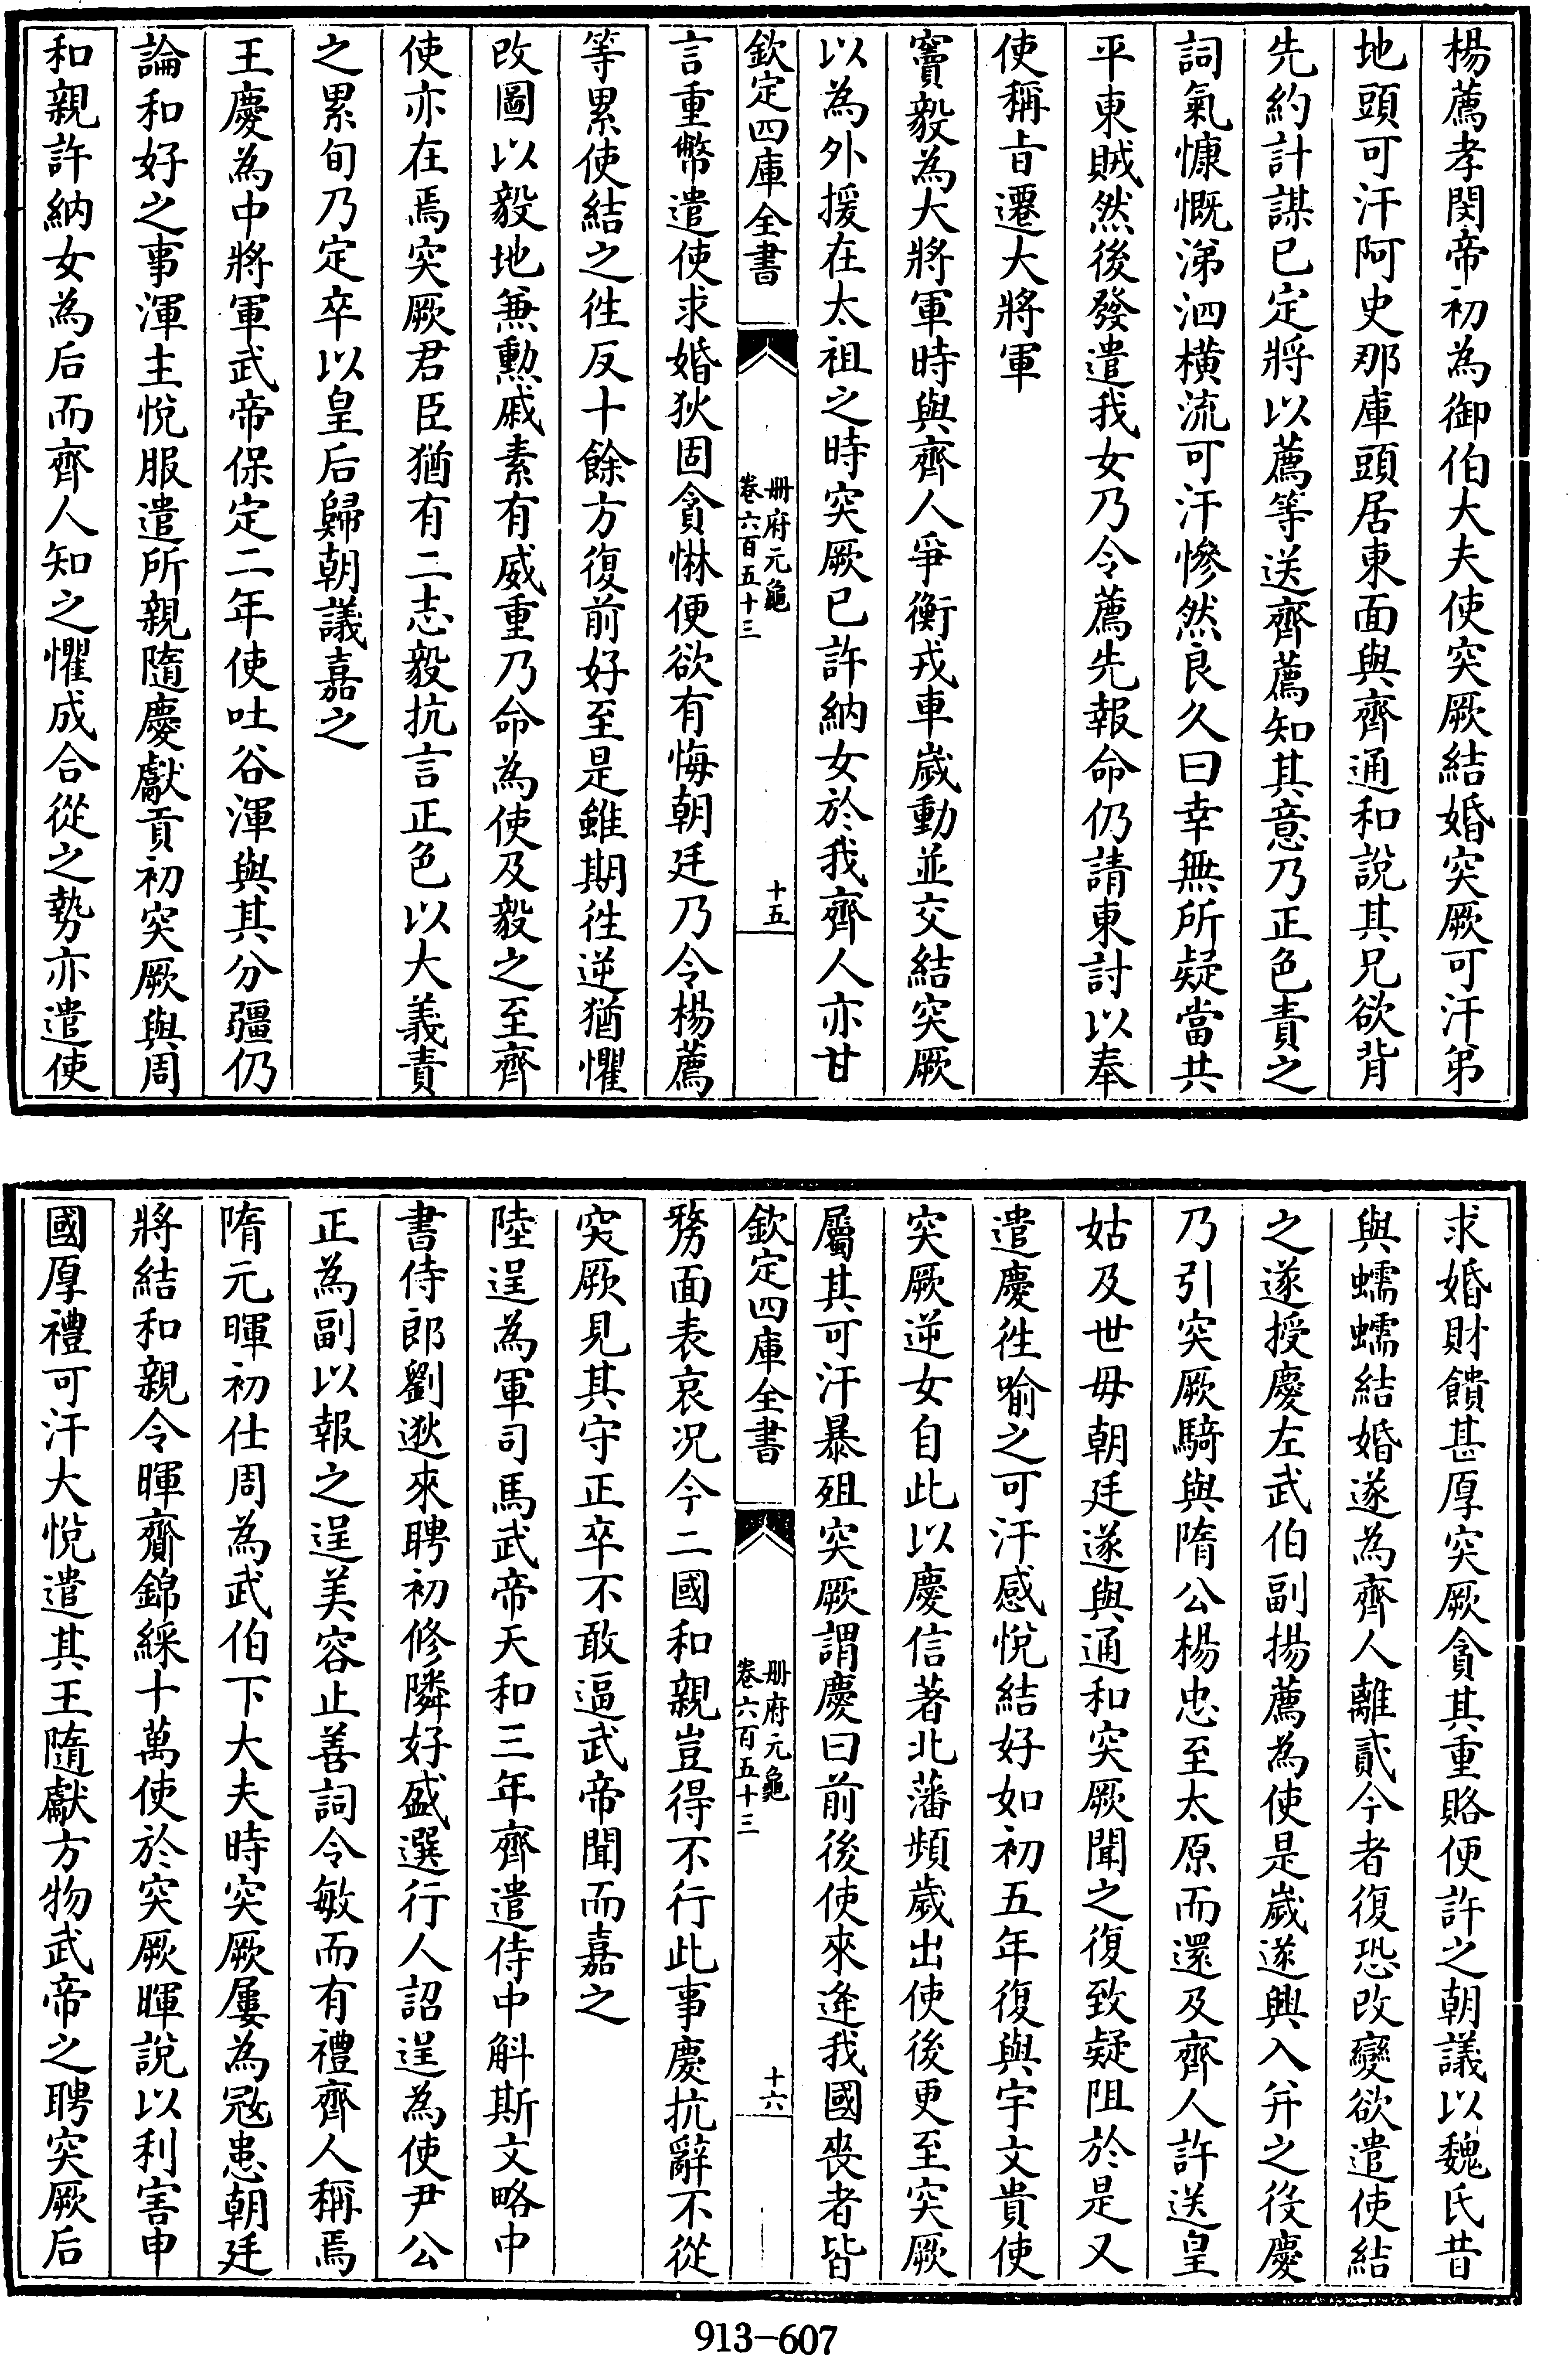 楊薦孝閔帝初為御伯大夫使突厥結婚突厥可汗弟
地頭可汗阿史那庫頭居東面與齊通和說其兄欲背
先約計謀已定將以薦等送齊薦知其意乃正色責之
詞氣慷慨涕泗橫流可汗慘然良久曰幸無所疑當共
平東賊然後發遣我女乃令薦先報命仍請東討以奉
使稱旨遷大將軍
竇毅為大將軍時與齊人爭衡戎車歲動並交結突厥
以為外援在太祖之時突厥已許納女於我齊人亦甘
欽定四庫全書
冊府元龜
卷六百五十三
十五
言重幣遣使求婚狄固貪惏便欲有悔朝廷乃令楊薦
等累使結之徃反十餘方復前好至是雖期徃逆猶懼
改圖以毅地兼勳戚素有威重乃命為使及毅之至齊
使亦在焉突厥君臣猶有二志毅抗言正色以大義責
之累旬乃定卒以皇后歸朝議嘉之
王慶為中將軍武帝保定二年使吐谷渾與其分疆仍
論和好之事渾主悅服遣所親隨慶獻貢初突厥與周
和親許納女為后而齊人知之懼成合從之勢亦遣使
求婚財饋甚厚突厥貪其重賂便許之朝議以魏氏昔
與蠕蠕結婚遂為齊人離貳今者復恐改變欲遣使結
之遂授慶左武伯副揚薦為使是歲遂興入并之役慶
乃引突厥騎與隋公楊忠至太原而還及齊人許送皇
姑及世母朝廷遂與通和突厥聞之復致疑阻於是又
遣慶徃喻之可汗感悅結好如初五年復與宇文貴使
突厥逆女自此以慶信著北藩頻歲出使後更至突厥
屬其可汗暴殂突厥謂慶曰前後使來逄我國喪者皆
欽定四庫全書
冊府元龜
卷六百五十三
十六
剺面表哀况今二國和親豈得不行此事慶抗辭不從
突厥見其守正卒不敢逼武帝聞而嘉之
陸逞為軍司馬武帝天和三年齊遣侍中斛斯文略中
書侍郎劉逖來聘初修隣好盛選行人詔逞為使尹公
正為副以報之逞美容止善詞令敏而有禮齊人稱焉
隋元暉初仕周為武伯下大夫時突厥屢為寇患朝廷
將結和親令暉齎錦綵十萬使於突厥暉說以利害申
國厚禮可汗大悅遣其王隨獻方物武帝之聘突厥后
913-607